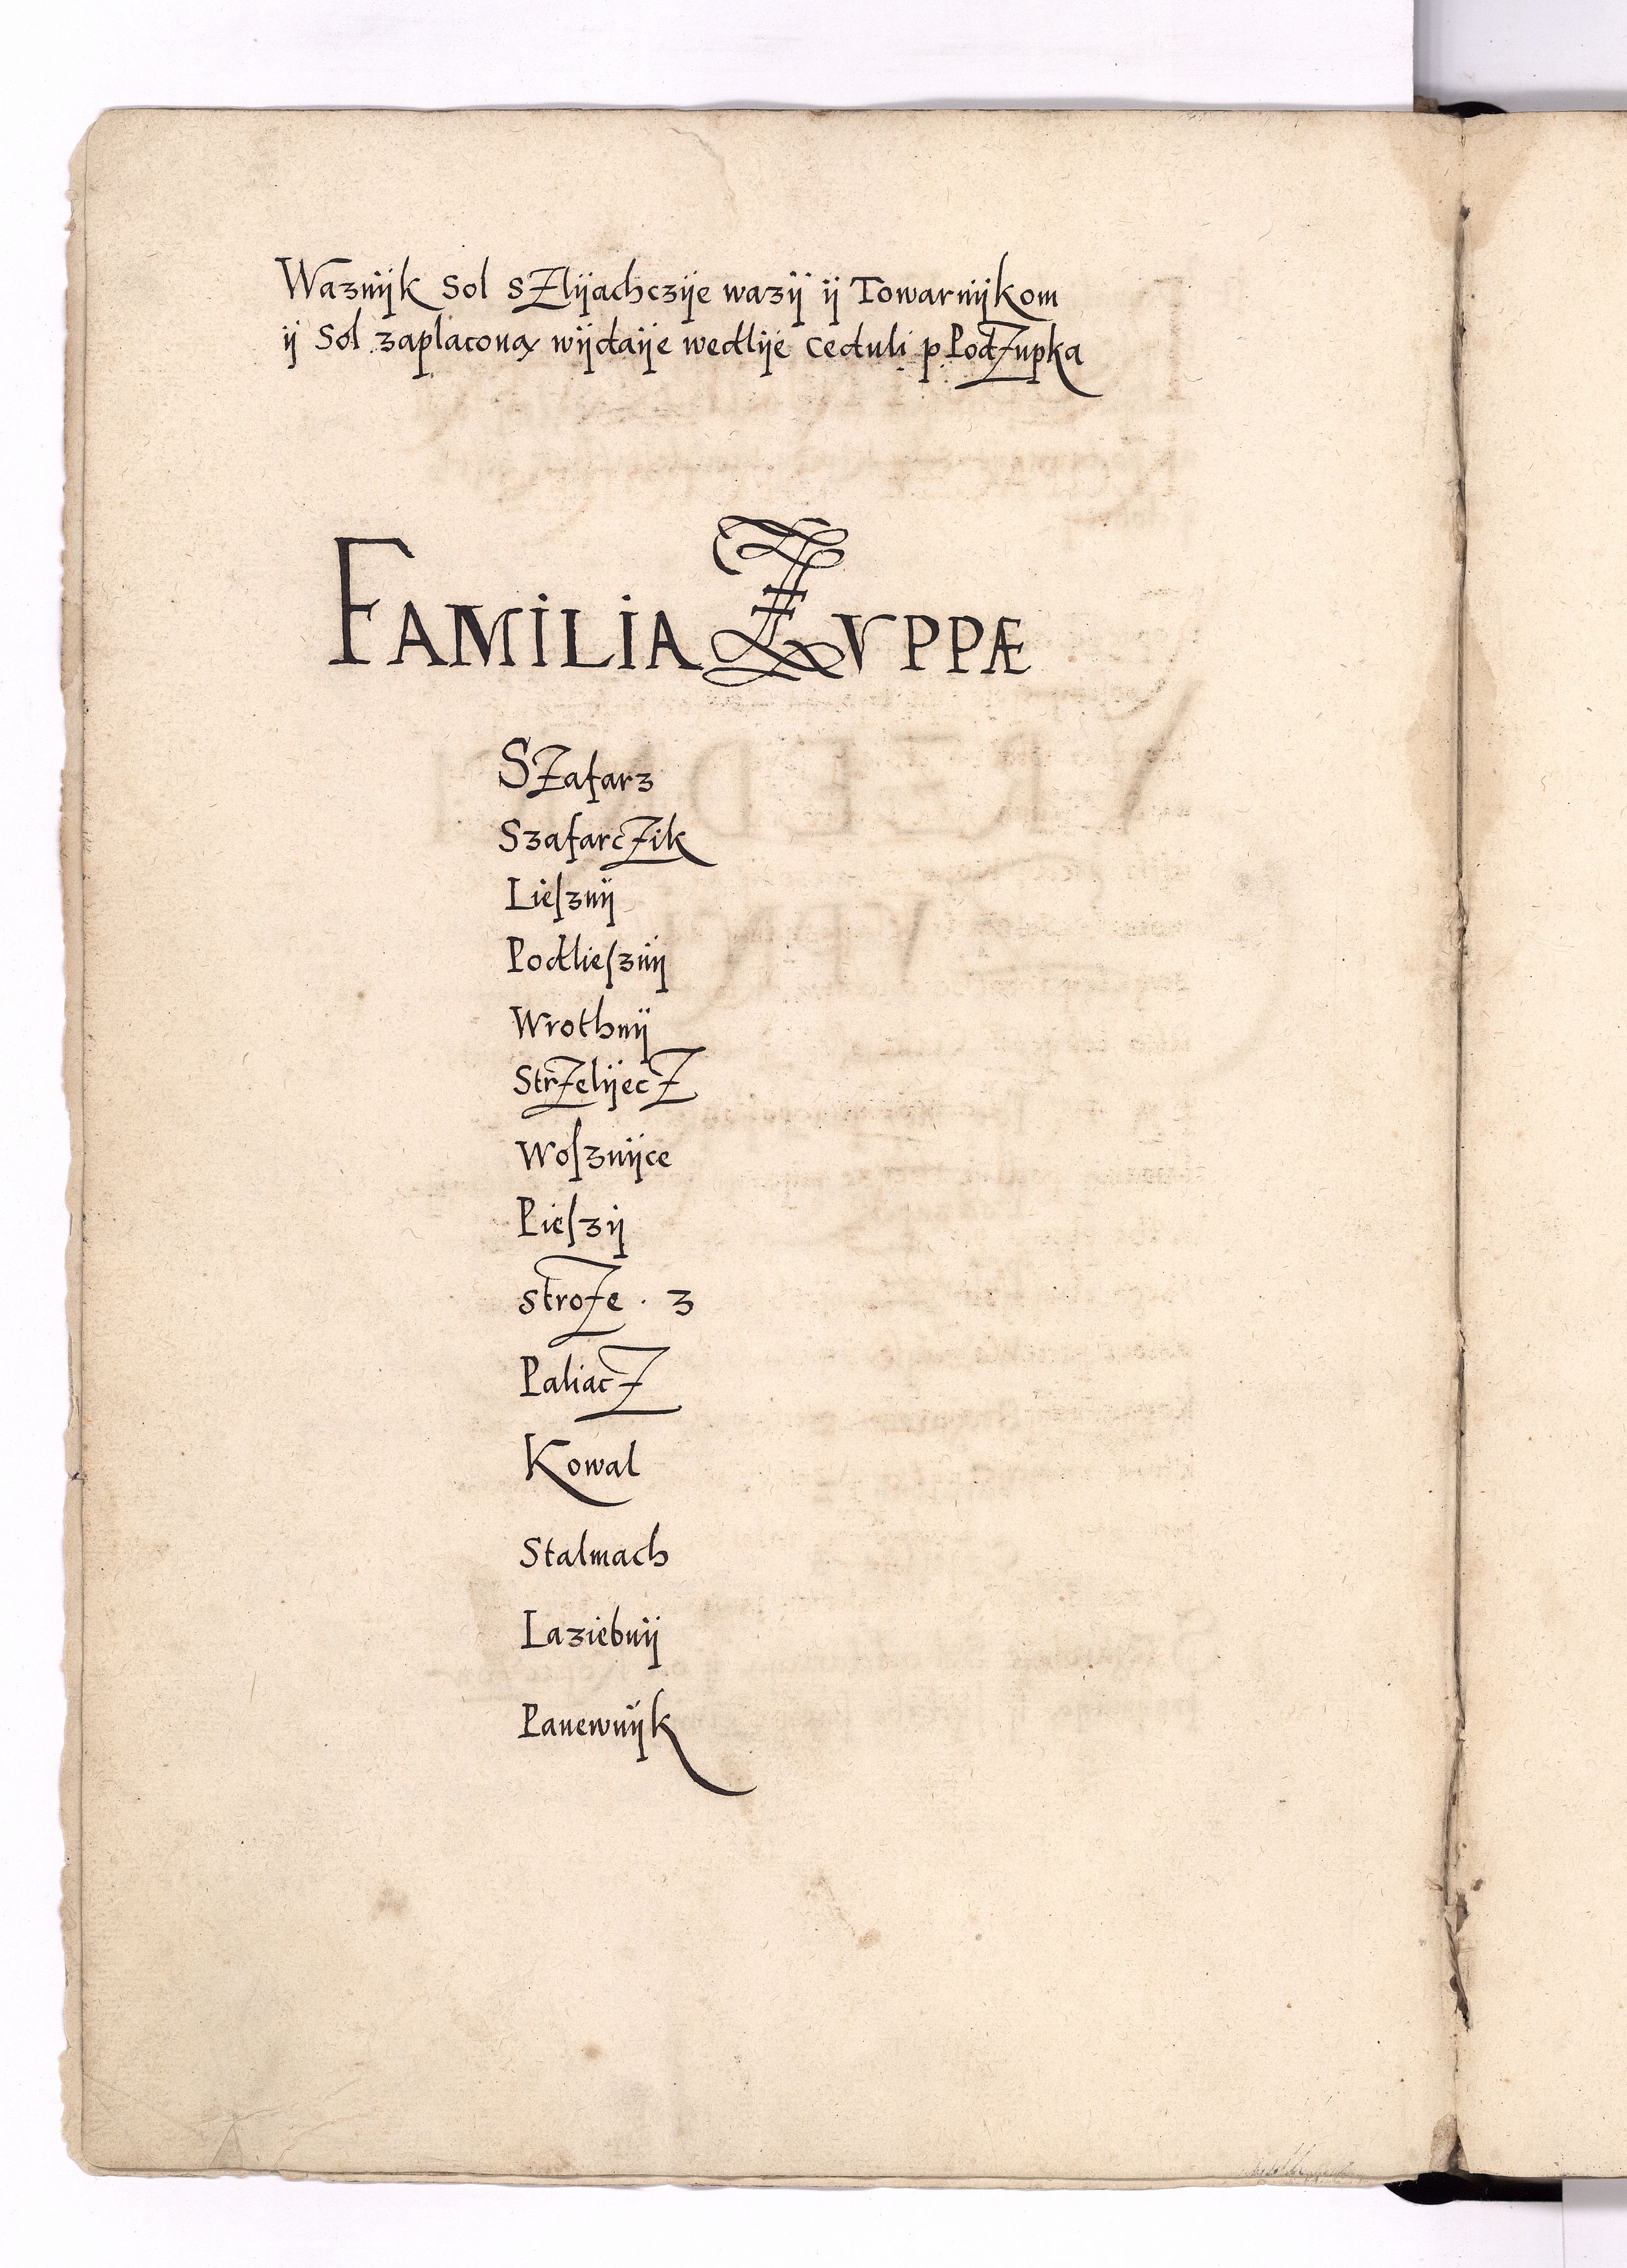 Waznijk Sol sZlijachczije wazij ij Towarnijkom
ij Sol zaplacona wijdaije wedlije ceduli p PodZupka
FAMILIA ZVPPÆ
SZafarz
SzafarcZik
Lieſznij
Podlieſznij
Wrothnij
StrZelijecZ
Woſznijce
Pieſzij
stroZe · 3
PaliacZ
Kowal
Stalmach
Laziebnij
Panewnijk